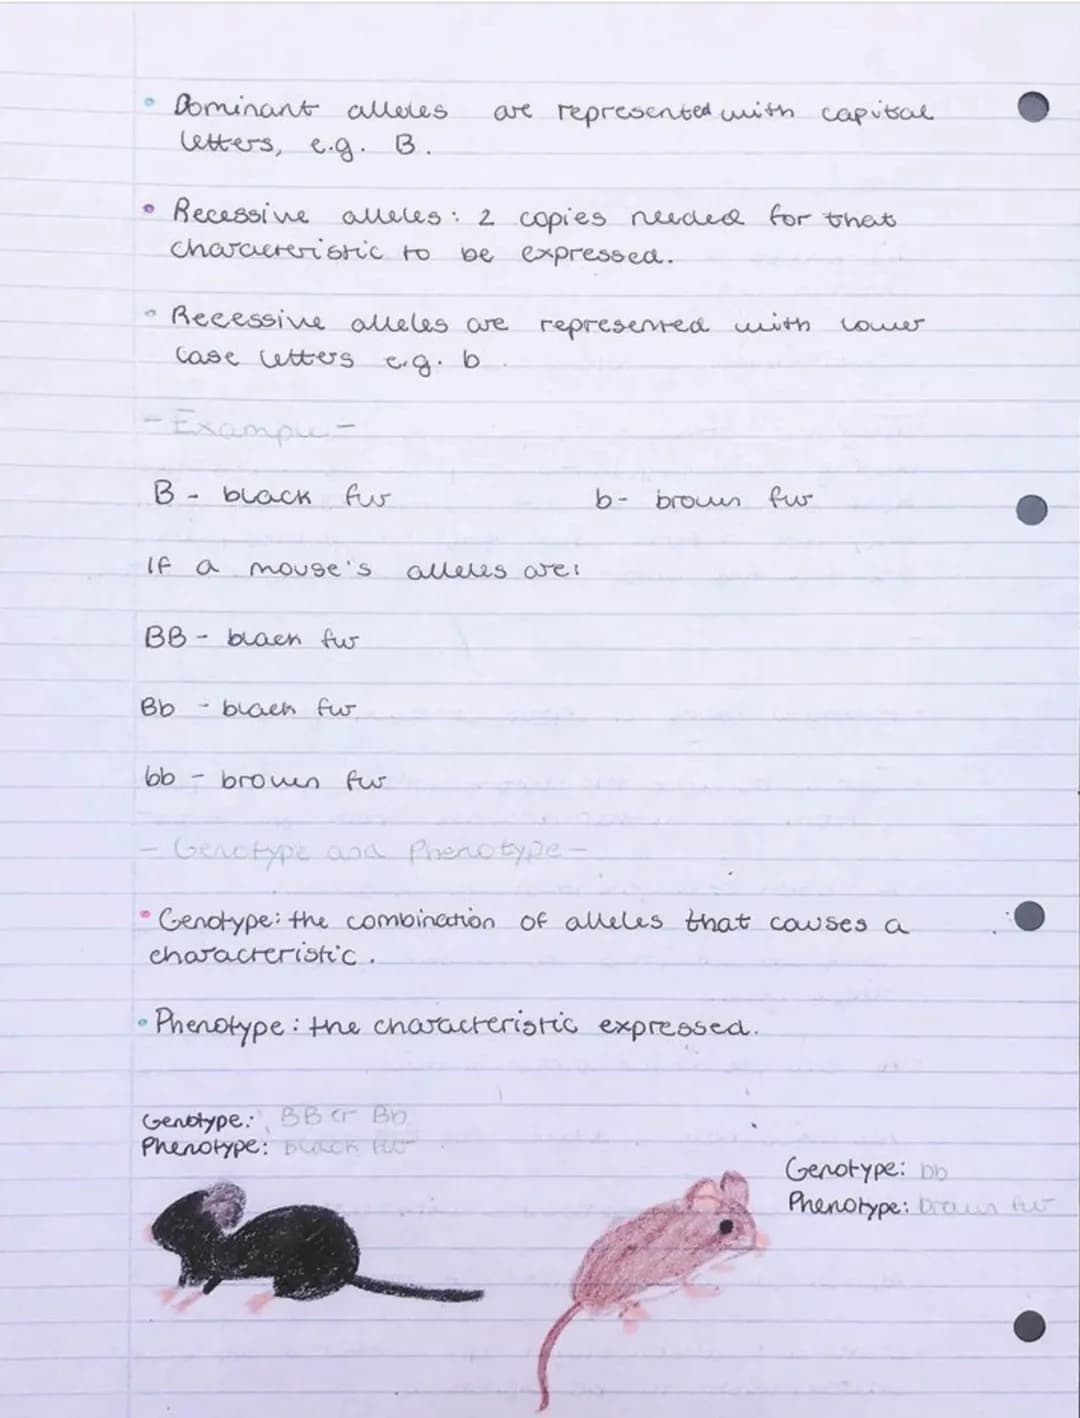 • Dominant alleles are represented with capital
letters, e.g. B.
• Recessive alleles: 2 copies needed for that
characteristic to be expressed.
• Recessive alleles are represented with lower
case letters e.g. b.
- Example -
B - black fur b - brown fur
If a mouse's alleles are:
BB - black fur
Bb - black fur
bb - brown fur
- Genotype and Phenotype -
• Genotype: the combination of alleles that causes a
characteristic.
• Phenotype: the characteristic expressed.
Genotype: BB or Bb
Phenotype: black fur
Genotype: bb
Phenotype: brown fur